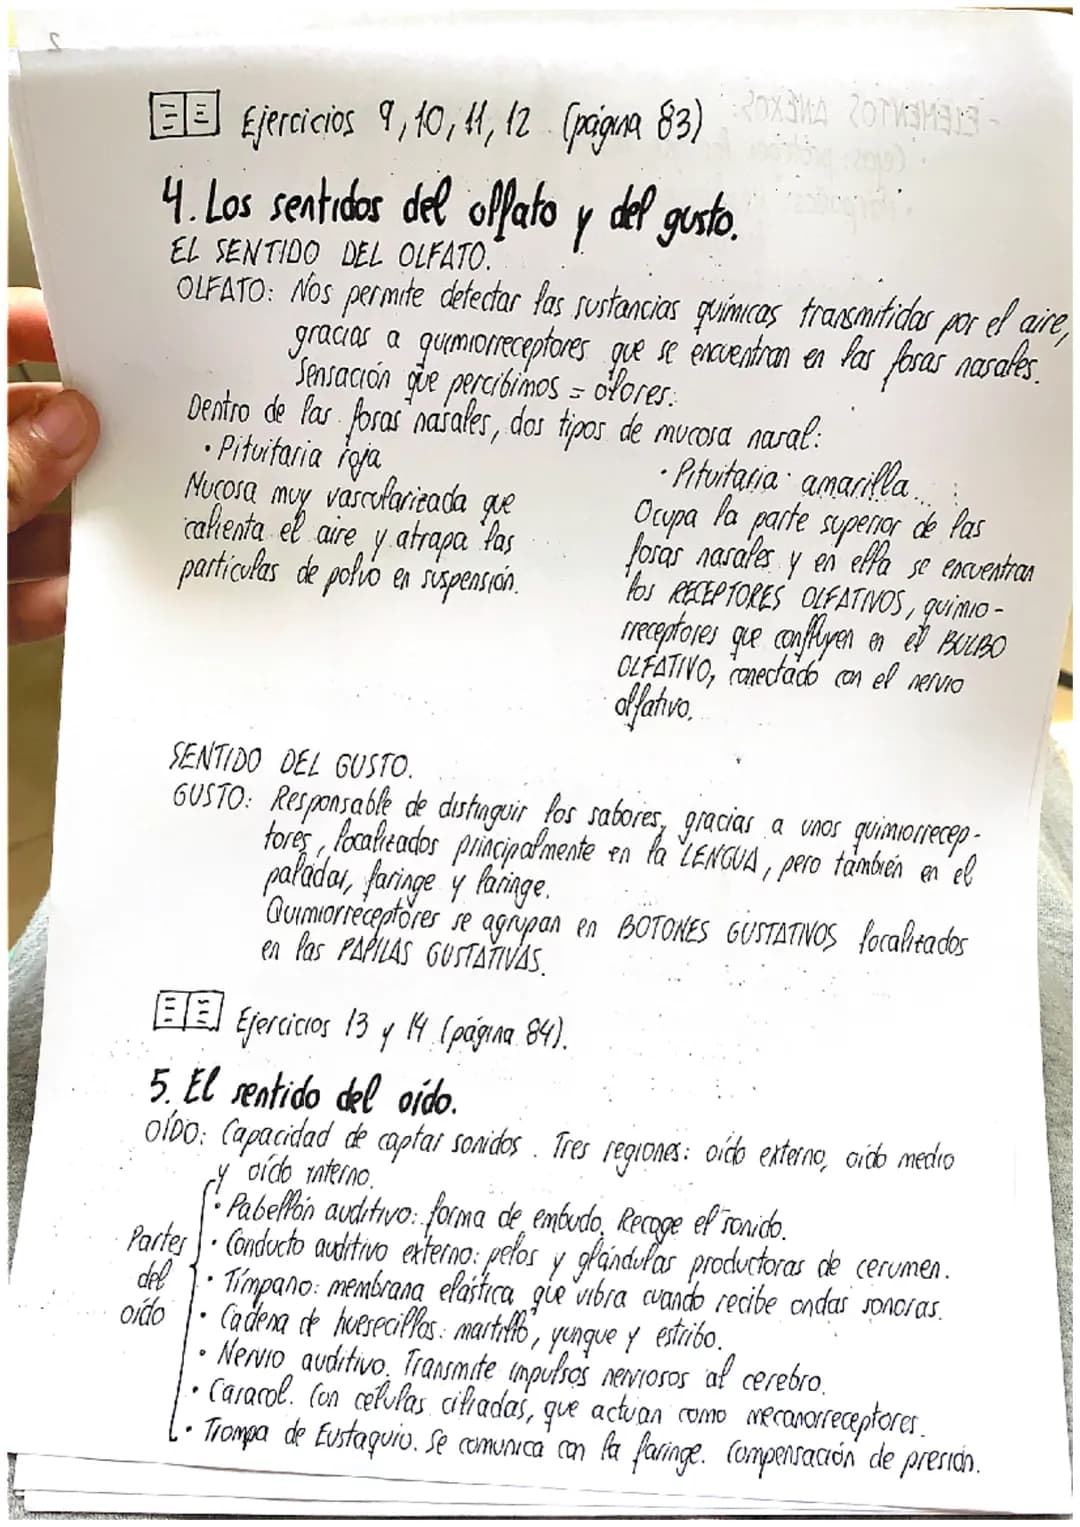 2
Ejercicios 9, 10, 11, 12 (página 83)
- ELEMENTOS ANEXOS:
4. Los sentidos del olfato y del gusto.
EL SENTIDO DEL OLFATO.
OLFATO: Nos permite detectar las sustancias químicas transmitidas por el aire,
gracias a quimiorreceptores que se encuentran en las fosas nasales.
Sensación que percibimos = olores.
Dentro de las fosas nasales, dos tipos de mucosa nasal:
· Pituitaria roja
Mucosa muy vascularizada que
calienta el aire y atrapa las
partículas de polvo en suspensión.
· Pituitaria amarilla.
Ocupa la parte superior de las
fosas nasales y en ella se encuentran
los RECEPTORES OLFATIVOS, quimio-
rreceptores que confluyen en el BULBO
OLFATIVO, conectado con el nervio
olfativo.
SENTIDO DEL GUSTO.
GUSTO: Responsable de distinguir los sabores, gracias a unos quimiorrecep-
tores, localizados principalmente en la LENGUA, pero también en el
paladar, faringe y laringe.
Quimiorreceptores se agrupan en BOTONES GUSTATIVOS localizados
en las PAPILAS GUSTATIVAS.
Ejercicios 13 y 14 (página 84).
5. El sentido del oído.
OÍDO: Capacidad de captar sonidos. Tres regiones: oído externo, oído medio
y oído interno.
Partes
del
oído
· Pabellón auditivo: forma de embudo. Recoge el sonido.
· Conducto auditivo externo: pelos y glándulas productoras de cerumen.
· Tímpano: membrana elástica que vibra cuando recibe ondas sonoras.
· Cadena de huesecillos: martillo, yunque y estribo.
· Nervio auditivo. Transmite impulsos nerviosos al cerebro.
· Caracol. Con células ciliadas, que actúan como mecanorreceptores.
· Trompa de Eustaquio. Se comunica con la faringe. Compensación de presión.